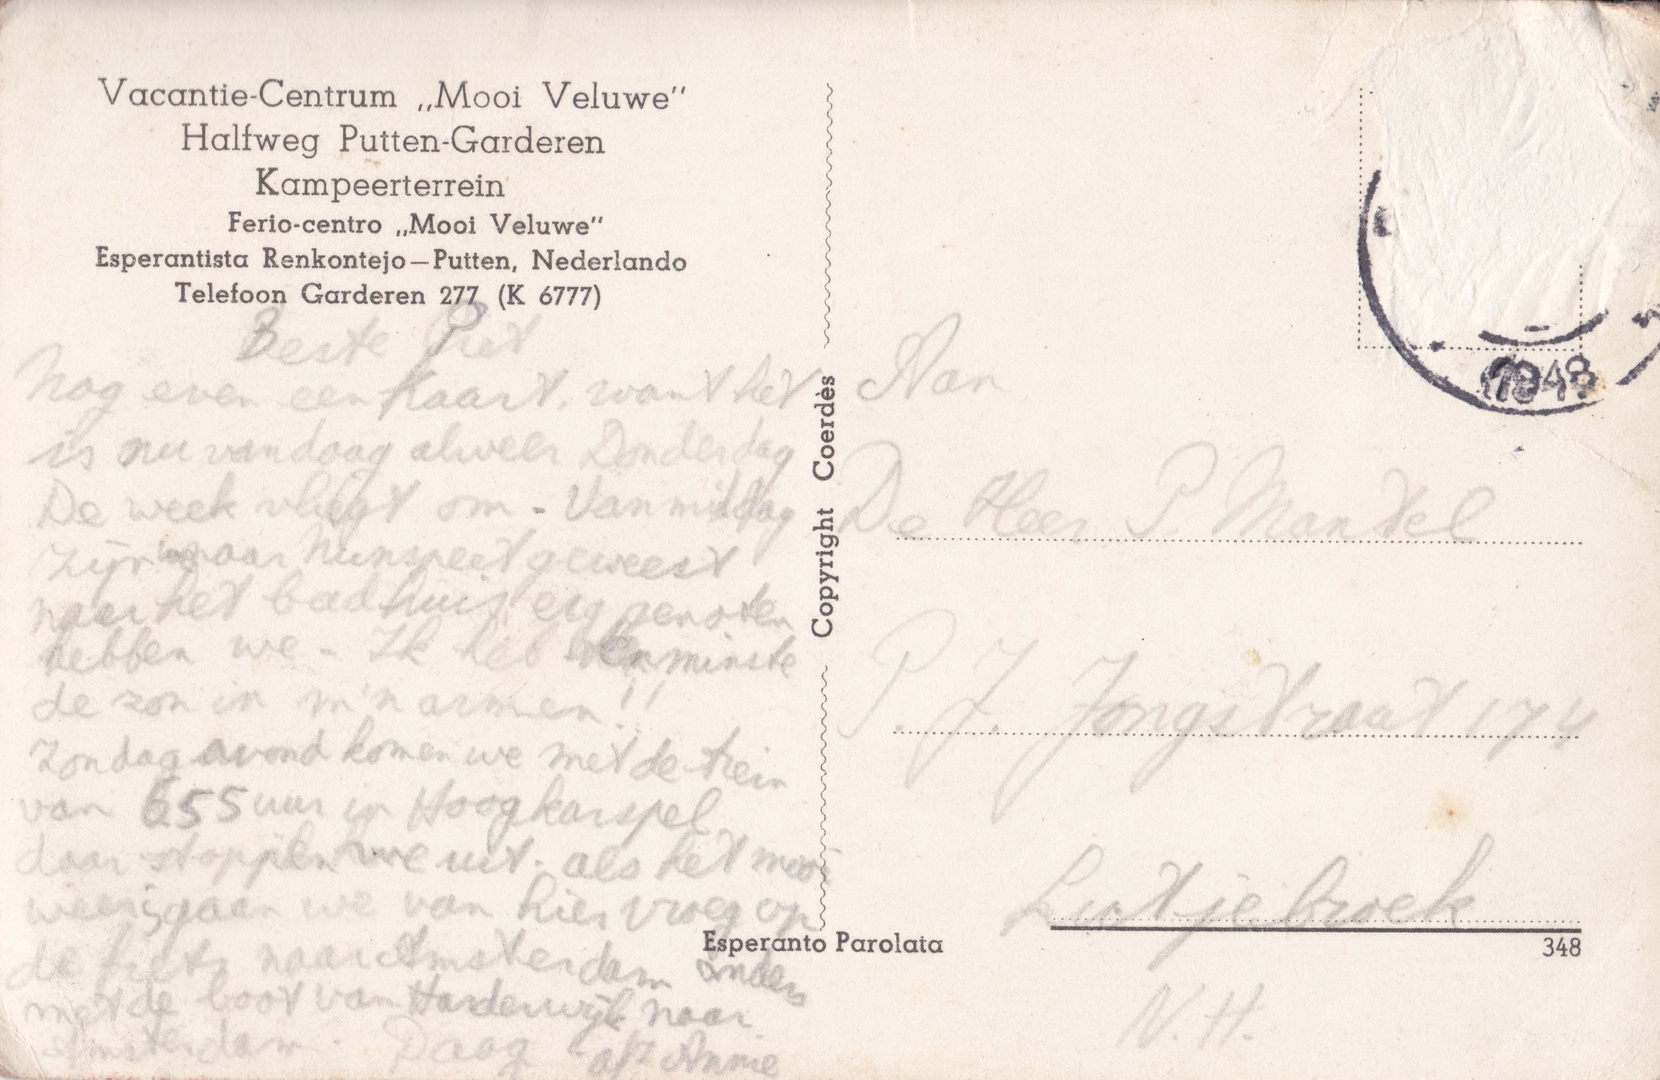 Vacantie-Centrum „Mooi Veluwe"
Halfweg Putten-Garderen
Kampeerterrein
Ferio-centro „Mooi Veluwe"
Esperantista Renkontejo—Putten, Nederlando
Telefoon Garderen 277 (K 6777)
Beste Piet
Nog even een kaart, want het
is nu vandaag alweer Donderdag
De week vliegt om - Vanmiddag
zijn we naar Nunspeet geweest
naar het badhuis, erg genoten
hebben we - Ik heb tenminste
de zon in m'n armen!!
Zondagavond komen we met de trein
van 6.55 uur in Hoogkarspel
daar stappen we uit. als het mooi
weer is, gaan we van hier vroeg op
de fiets naar Amsterdam anders
met de boot van Harderwijk naar
Amsterdam. Daag Annie
Copyright Coerdès
Esperanto Parolata
1948
Aan
De Heer P. Mantel
P. J. Jongstraat 174
Lutjebroek
348
N.H.